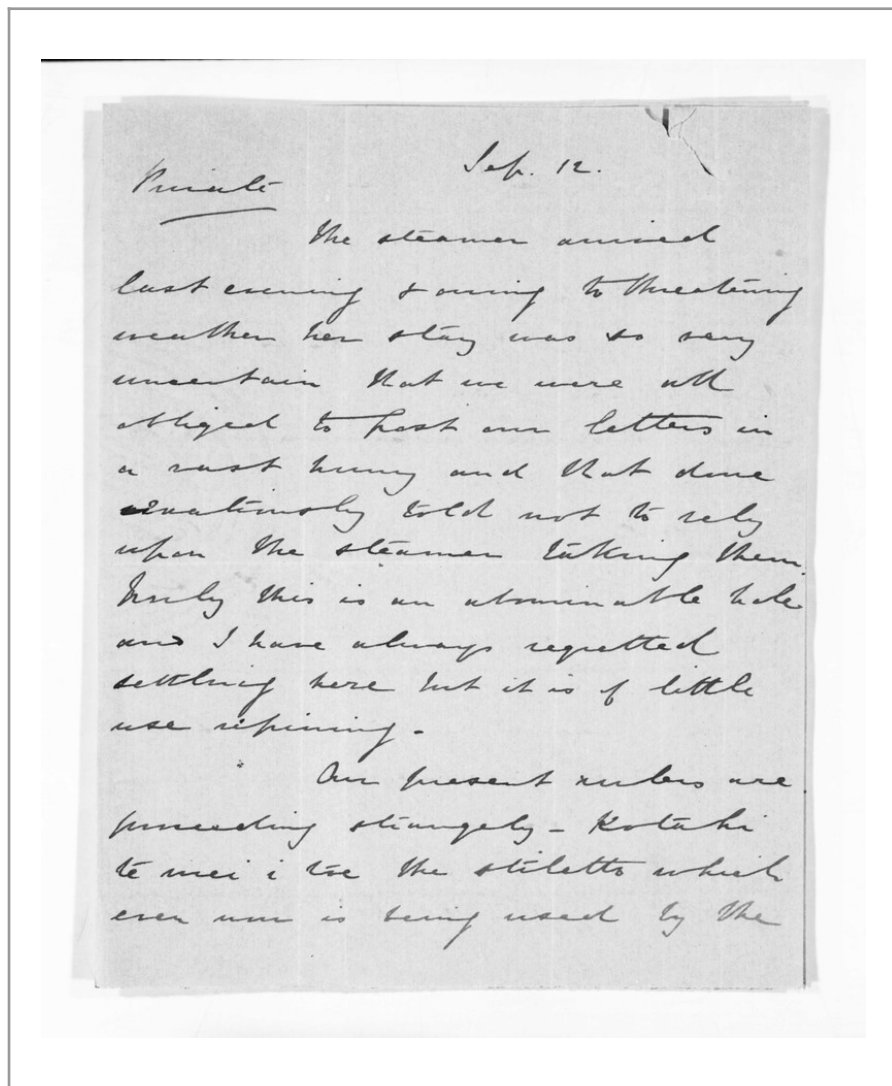 Sep. 12.
Private
The steamer arrived
last evening & owing to threatening
weather her stay was so very
uncertain that we were all
obliged to post our letters in
a vast hurry and that done
told not to rely
upon the steamer taking them.
Truly this is an abominable hole
and I have always regretted
settling here but it is of little
use repining.
Our present rulers are
proceeding strangely - Kotahi
te mei i toe the stiletto which
even now is being used by the